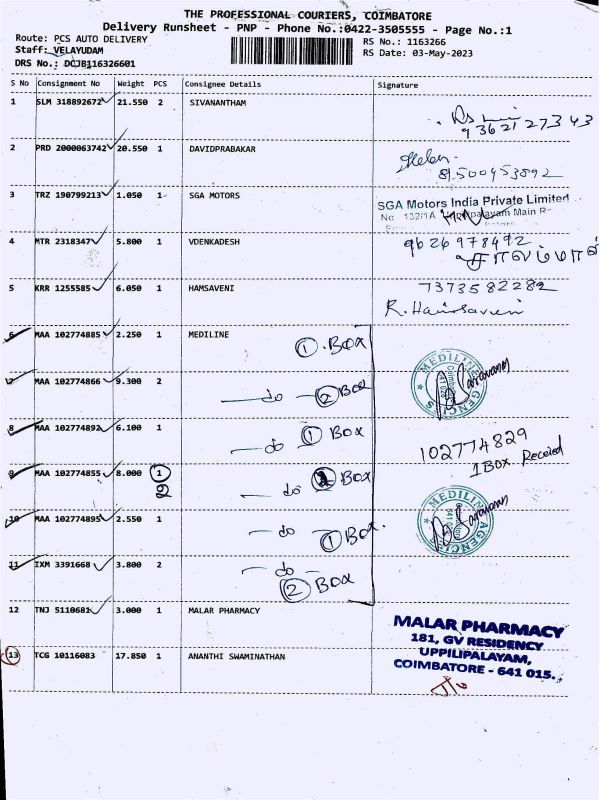 THE PROFESSIONAL COURIERS, COIMBATORE
Delivery Runsheet - PNP - Phone No.:0422-3505555 - Page No.:1
Route: PCS AUTO DELIVERY
RS No.: 1163266
Staff: VELAYUDAM
RS Date: 03-May-2023
DRS No.: DCJB116326601
S No Consignment No Weight PCS Consignee Details Signature
1 SLM 318892672 21.550 2 SIVANANTHAM
9362127343
2 PRD 2000063742 20.550 1 DAVIDPRABAKAR
Helen
81500453892
3 TRZ 190799213 1.050 1 SGA MOTORS
SGA Motors India Private Limited
No 132/1A Main R
4 MTR 2318347 5.800 1 VDENKADESH
9626978492
5 KRR 1255585 6.050 1 HAMSAVENI
7373582282
R. Hamsaveni
6 MAA 102774885 2.250 1 MEDILINE
1 . Box
7 MAA 102774866 9.300 2
do 2 Box
MEDILINE AGENCIES
Saravanan
8 MAA 102774892 6.100 1
do 1 Box
102774829
1 Box Received
9 MAA 102774855 8.000 1
2
do Box
10 MAA 102774895 2.550 1
do 1 Box.
MEDILINE AGENCIES
Saravanan
11 IXM 3391668 3.800 2
do
2 Box
12 TNJ 5110681 3.000 1 MALAR PHARMACY
MALAR PHARMACY
181, GV RESIDENCY
UPPILIPALAYAM,
COIMBATORE - 641 015.
13 TCG 10116083 17.850 1 ANANTHI SWAMINATHAN